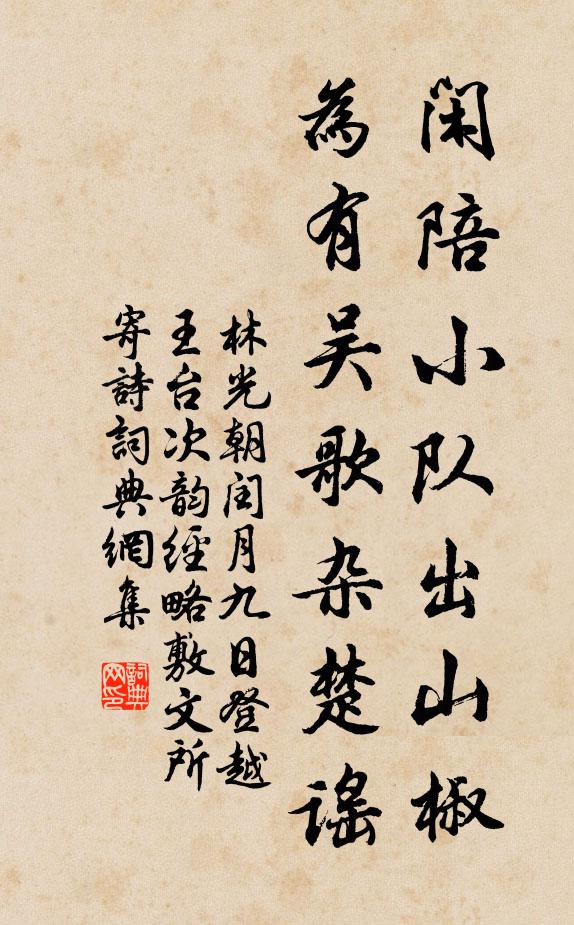 闲陪小队出山椒
為有吴歌杂楚谣
林光朝闰月九日登越
王台次韵经略敷文所
寄詩詞典網集
詞典
网印